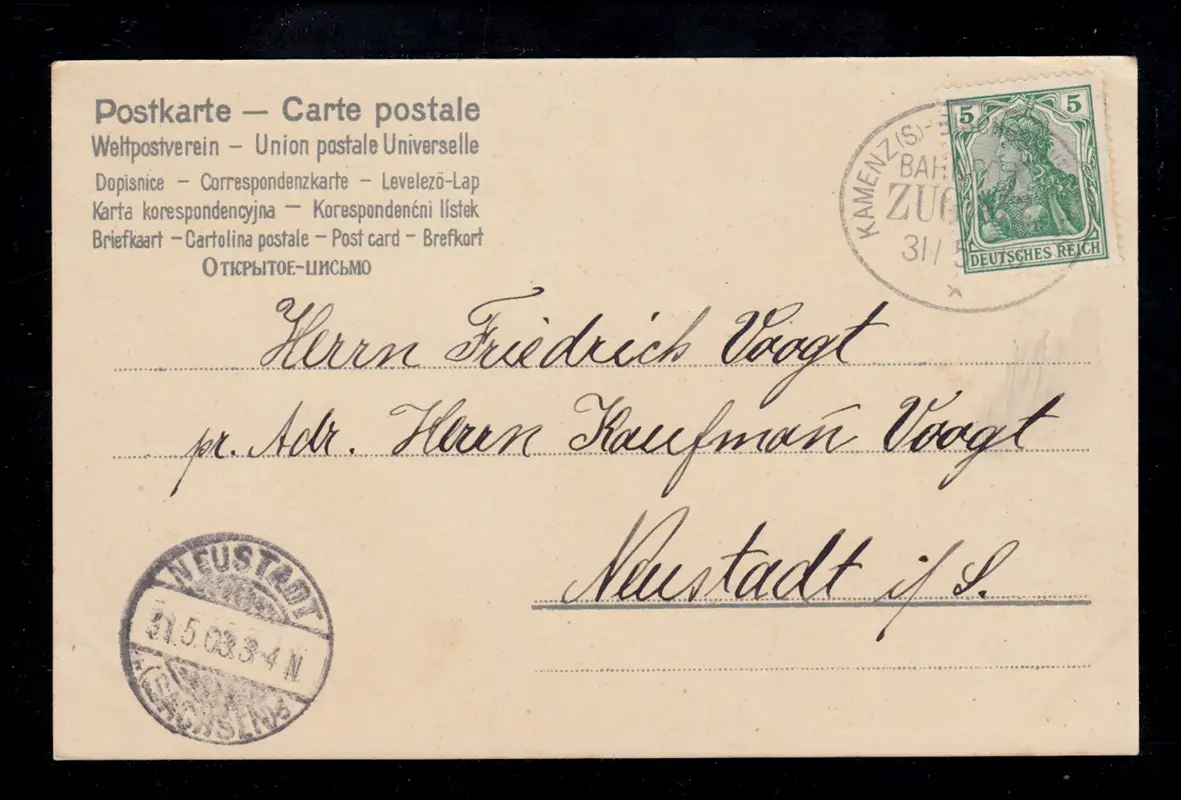 Postkarte — Carte postale
Weltpostverein – Union postale Universelle
Dopisnice – Correspondenzkarte – Levelező-Lap
Karta korespondencyjna – Korespondenčni lístek
Briefkaart – Cartolina postale – Post card – Brefkort
Открытое-письмо
5 5
DEUTSCHES REICH
KAMENZ (S)-
BAH
ZUG
31/ 5
Herrn Friedrich Voogt
pr. Adr. Herrn Kaufman̄ Voogt
Neustadt i/S.
NEUSTADT
31.5.03. 3-4 N
(SACHSEN)